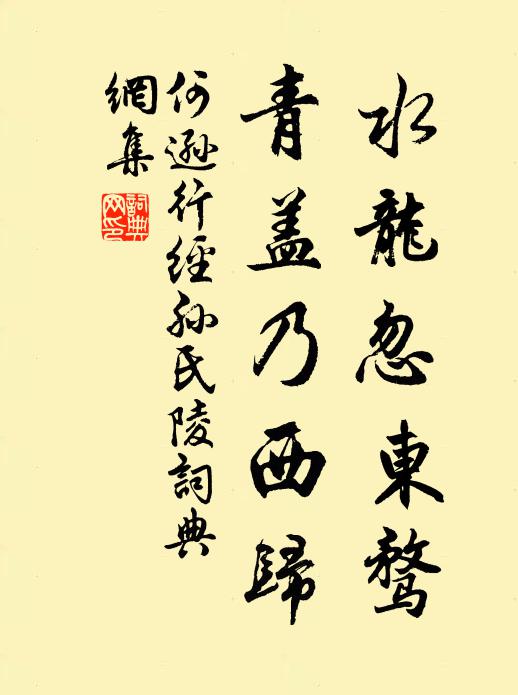 水龍忽東鶩
青盖乃西歸
何遜行經孙氏陵詞典
網集
詞典
网印